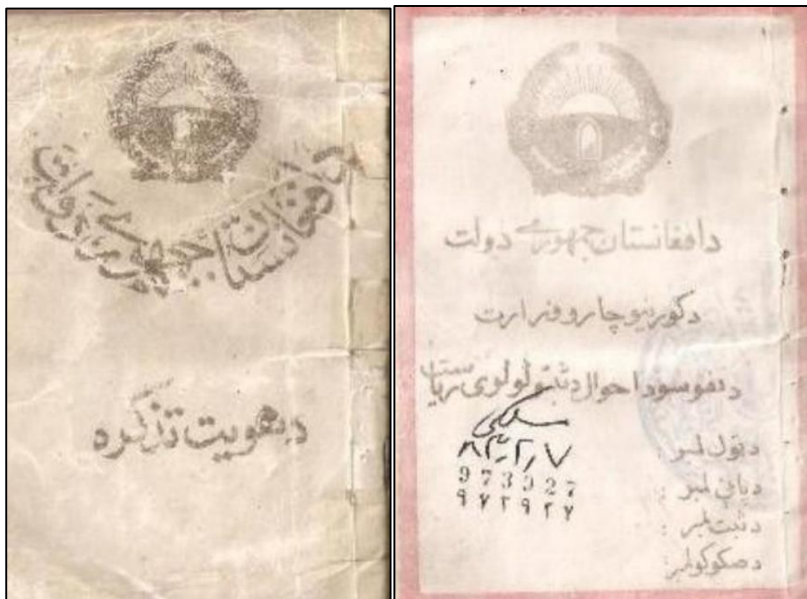 دافغانستان جمهوری دولت
دهویت تذکره
دافغانستان جمهوری دولت
دکورنیو چارو وزارت
دنفوسو داحوال دثبتولو لوی ریاست
دټول لمبر :
دپاڼی لمبر : 973927
دثبت لمبر : ۹۷۳۹۲۷
دصکوکو لمبر: